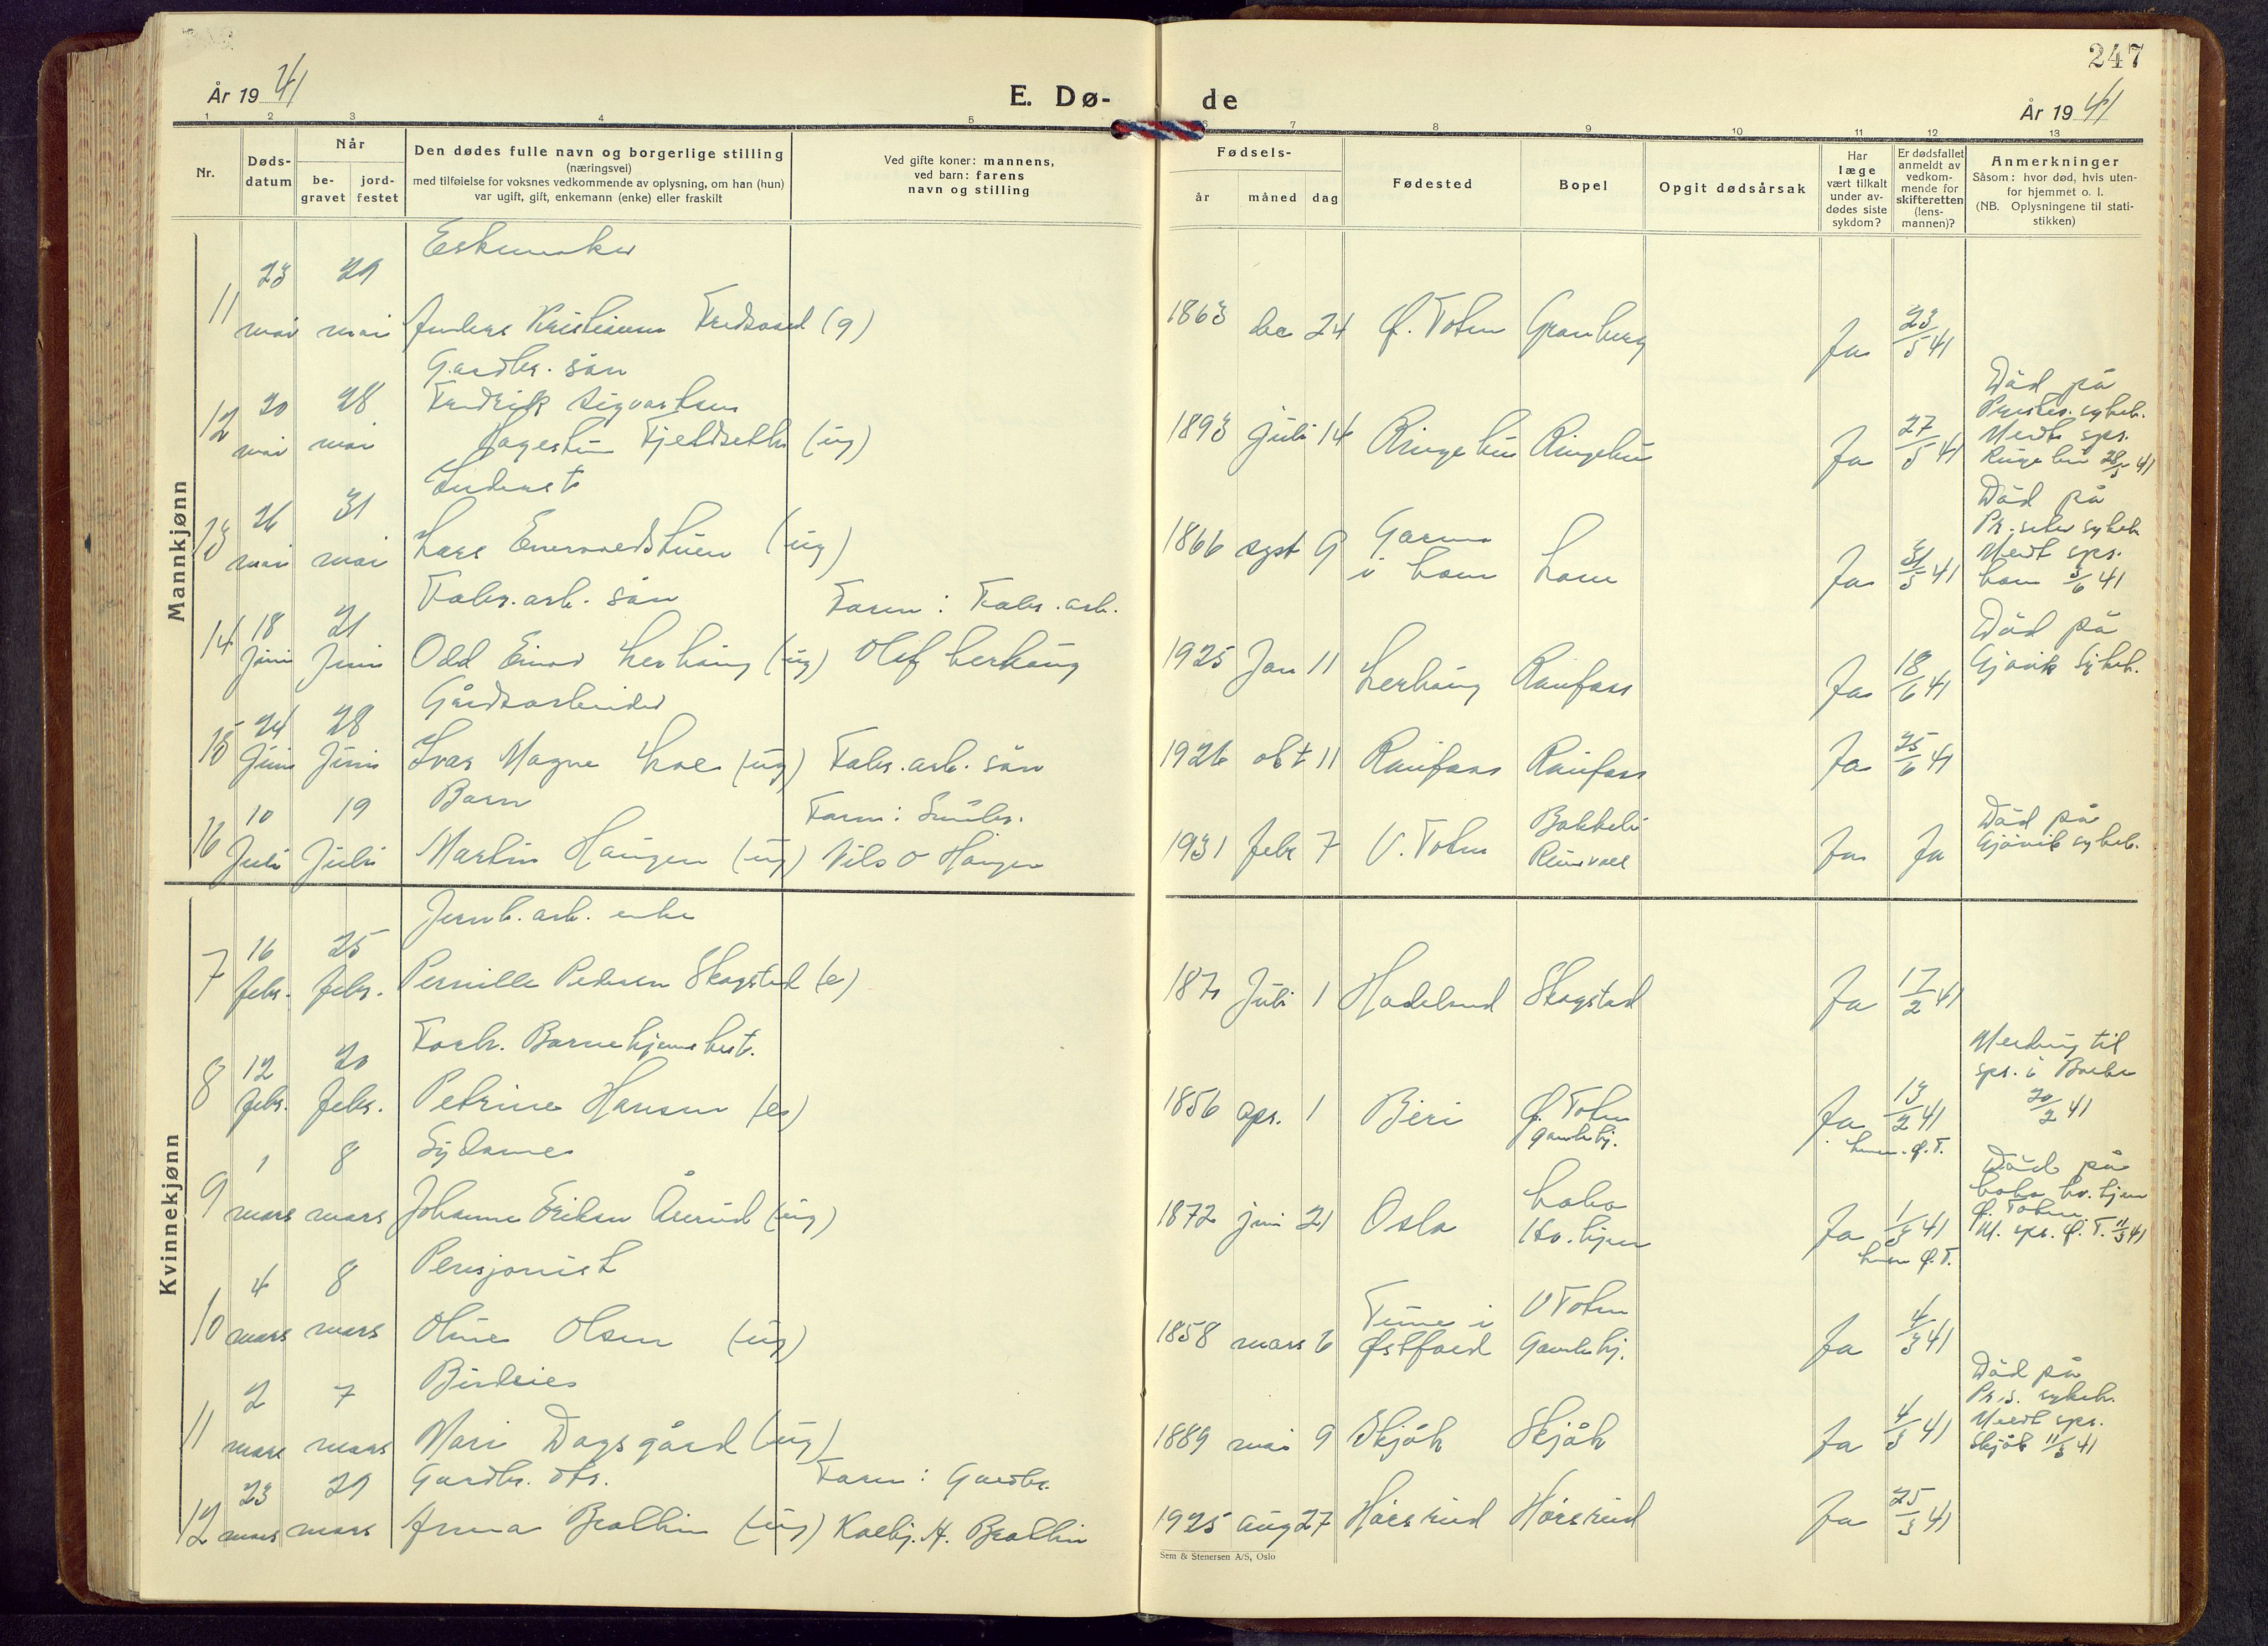 247
År 1941
E. Dø-
de
År 1941
1 2 3 4 5 6 7 8 9 10 11 12 13
Nr.
Døds-
datum
Når
be-
gravet
jord-
festet
Den dødes fulle navn og borgerlige stilling
(næringsvei)
med tilføielse for voksnes vedkommende av oplysning, om han (hun)
var ugift, gift, enkemann (enke) eller fraskilt
Ved gifte koner: mannens,
ved barn: farens
navn og stilling
Fødsels-
år måned dag
Fødested
Bopel
Opgit dødsårsak
Har
læge
vært tilkalt
under av-
dødes siste
sykdom?
Er dødsfallet
anmeldt av
vedkom-
mende for
skifteretten
(lens-
mannen)?
Anmerkninger
Såsom: hvor død, hvis uten-
for hjemmet o. l.
(NB. Oplysningene til stati-
stikken)
Mannkjønn
Eskemaker
11 23 mai 29 mai Anders Kristiansen (g) 1863 des 24 Ø. Toten Granberg Ja 23/5 41
Gardbr. søn
12 20 mai 28 mai Fredrik Sigvartsen
Hagestuen Fjeldseth (ug) 1893 juli 14 Ringebu Ringebu Ja 27/5 41
Død på
sykeh.
Medt spr.
Ringebu 28/5 41
13 26 mai 31 mai Lars (ug) 1866 sept 9 Garmo
i Lom Lom Ja 31/5 41
Død på
sykeh
Medt spr.
Lom 3/6 41
Fabr. arb. søn
Faren: Fabr. arb.
14 18 Juni 21 Juni Odd Einar Lerhaug (ug) Olaf Lerhaug 1925 Jan 11 Lerhaug Raufoss Ja 18/6 41
Død på
Gjøvik Sykeh.
Gårdsarbeider
15 24 Juni 28 Juni Ivar Magne Loe (ug) Fabr. arb. søn 1926 okt 11 Raufoss Raufoss Ja 25/6 41
Barn
Faren: Småbr.
16 10 Juli 19 Juli Martin Haugen (ug) Nils O Haugen 1931 febr 7 V. Toten Bakkeli
Reinsvoll Ja Ja
Død på
Gjøvik sykeh.
Kvinnekjønn
Jernb. arb. enke
7 16 febr. 25 febr. Pernille Pedersen Skogstad (e) 1871 Juli 1 Hadeland Skogstad Ja 17/2 41
Forh. Barnehjemsbest.
8 12 febr. 20 febr. Petrine Hansen (e) 1856 apr. 1 Biri Ø. Toten
Gamlehj. Ja 13/2 41
Lensm. Ø. T.
Melding til
spr. i
20/2 41
Sydame
9 1 mars 8 mars Johanne Eriksen Åsrud (ug) 1872 juni 21 Oslo Labo
Kv. hjem Ja 1/3 41
Lensm Ø. T.
Død på
Labo kv. hjem
Ø. Toten
M. spr. Ø. T. 11/3 41
Pensjonist
10 4 mars 8 mars Oline Olsen (ug) 1858 mars 6 Tune i
Østfold V Toten
Gamlehj. Ja 4/3 41
Budeie
11 2 mars 7 mars Mari Dagsgård (ug) 1889 mai 9 Skjåk Skjåk Ja 4/3 41
Død på
Pr. s. sykeh.
Meldt spr.
Skjåk 11/3 41
Gardbr. dtr.
Faren: Gardbr.
12 23 mars 29 mars Anna Brattlien (ug) Kolbj. H. Brattlien 1925 aug 27 Hårsrud Hårsrud Ja 25/3 41
Sem & Stenersen A/S, Oslo